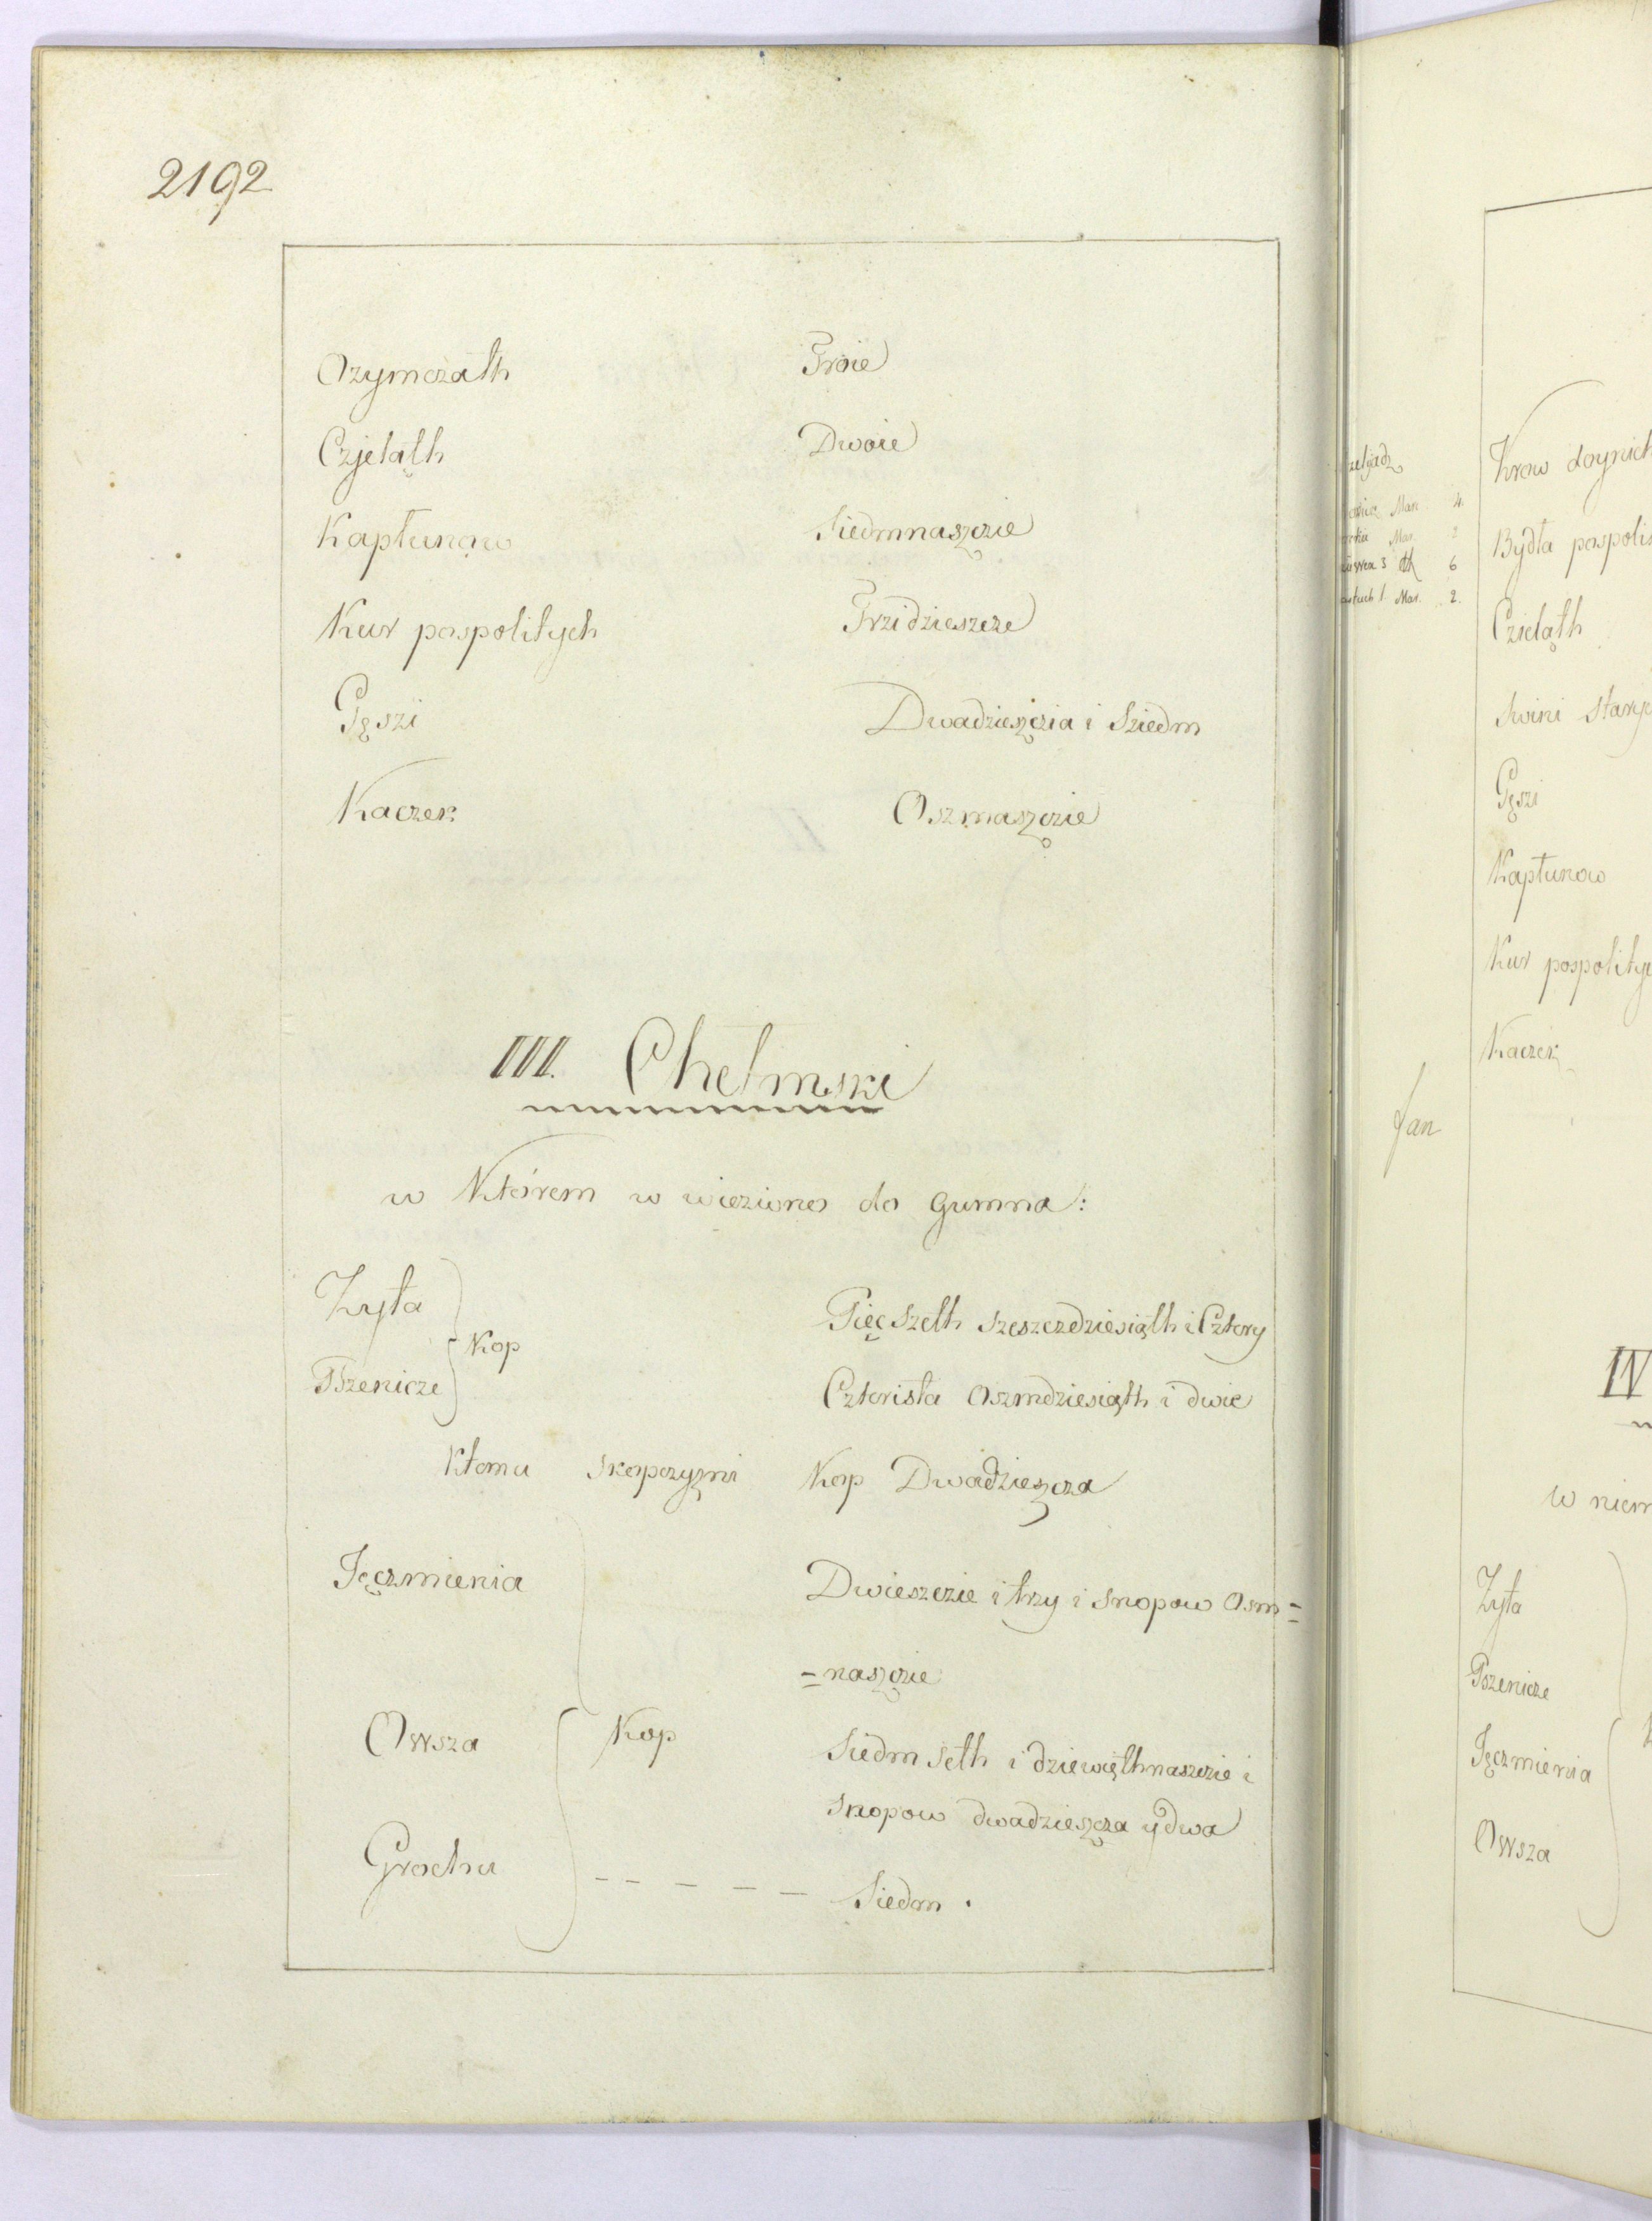 2192
Ozymczath Troie
Czjeląth Dwoie
Kapłunow Siedmnaszczie
Kur pospolitych Trzidzieszcze
Gęszi Dwadzieszczia i Sziedm
Kaczek Oszmaszczie
III. Chełmski
w Którem w wieziono do Gumna:
Zyta Pięc szeth szeszczdziesiąth i Cztery
Kop
Pszenicze Czterista Oszmdziesiąth i dwie
Ktomu Skopczyzni Kop Dwadzieszcza
Jęczmienia Dwieszczie i trzy i Snopow Osm=
=naszczie
Owsza Kop Siedm Seth i dziewięthnaszczie i
Snopow dwadzieszcza y dwa
Grochu – – – – – Siedm.
Krow doynich
Czieląth
Gęszi
Kapłunow
Kaczek
Jan
IV
Zyta
Pszenicze
Jęczmienia
Owsza